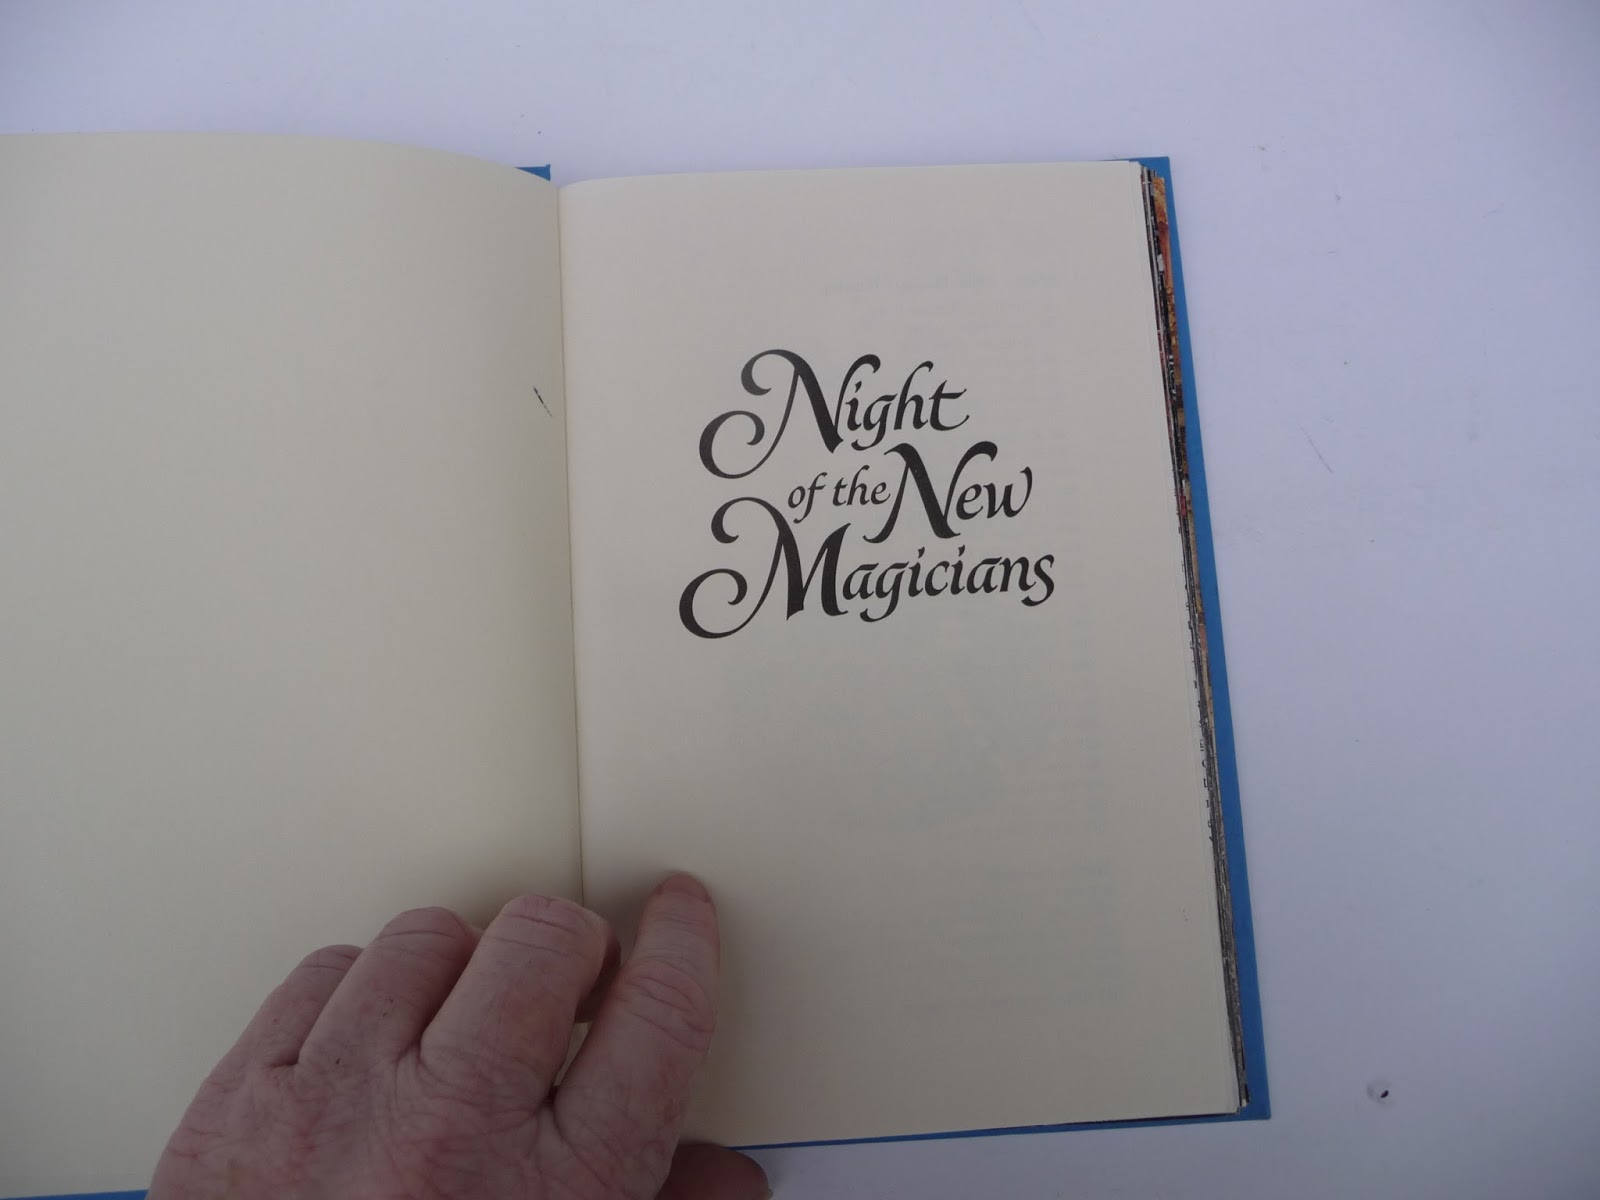 Night
of the New
Magicians